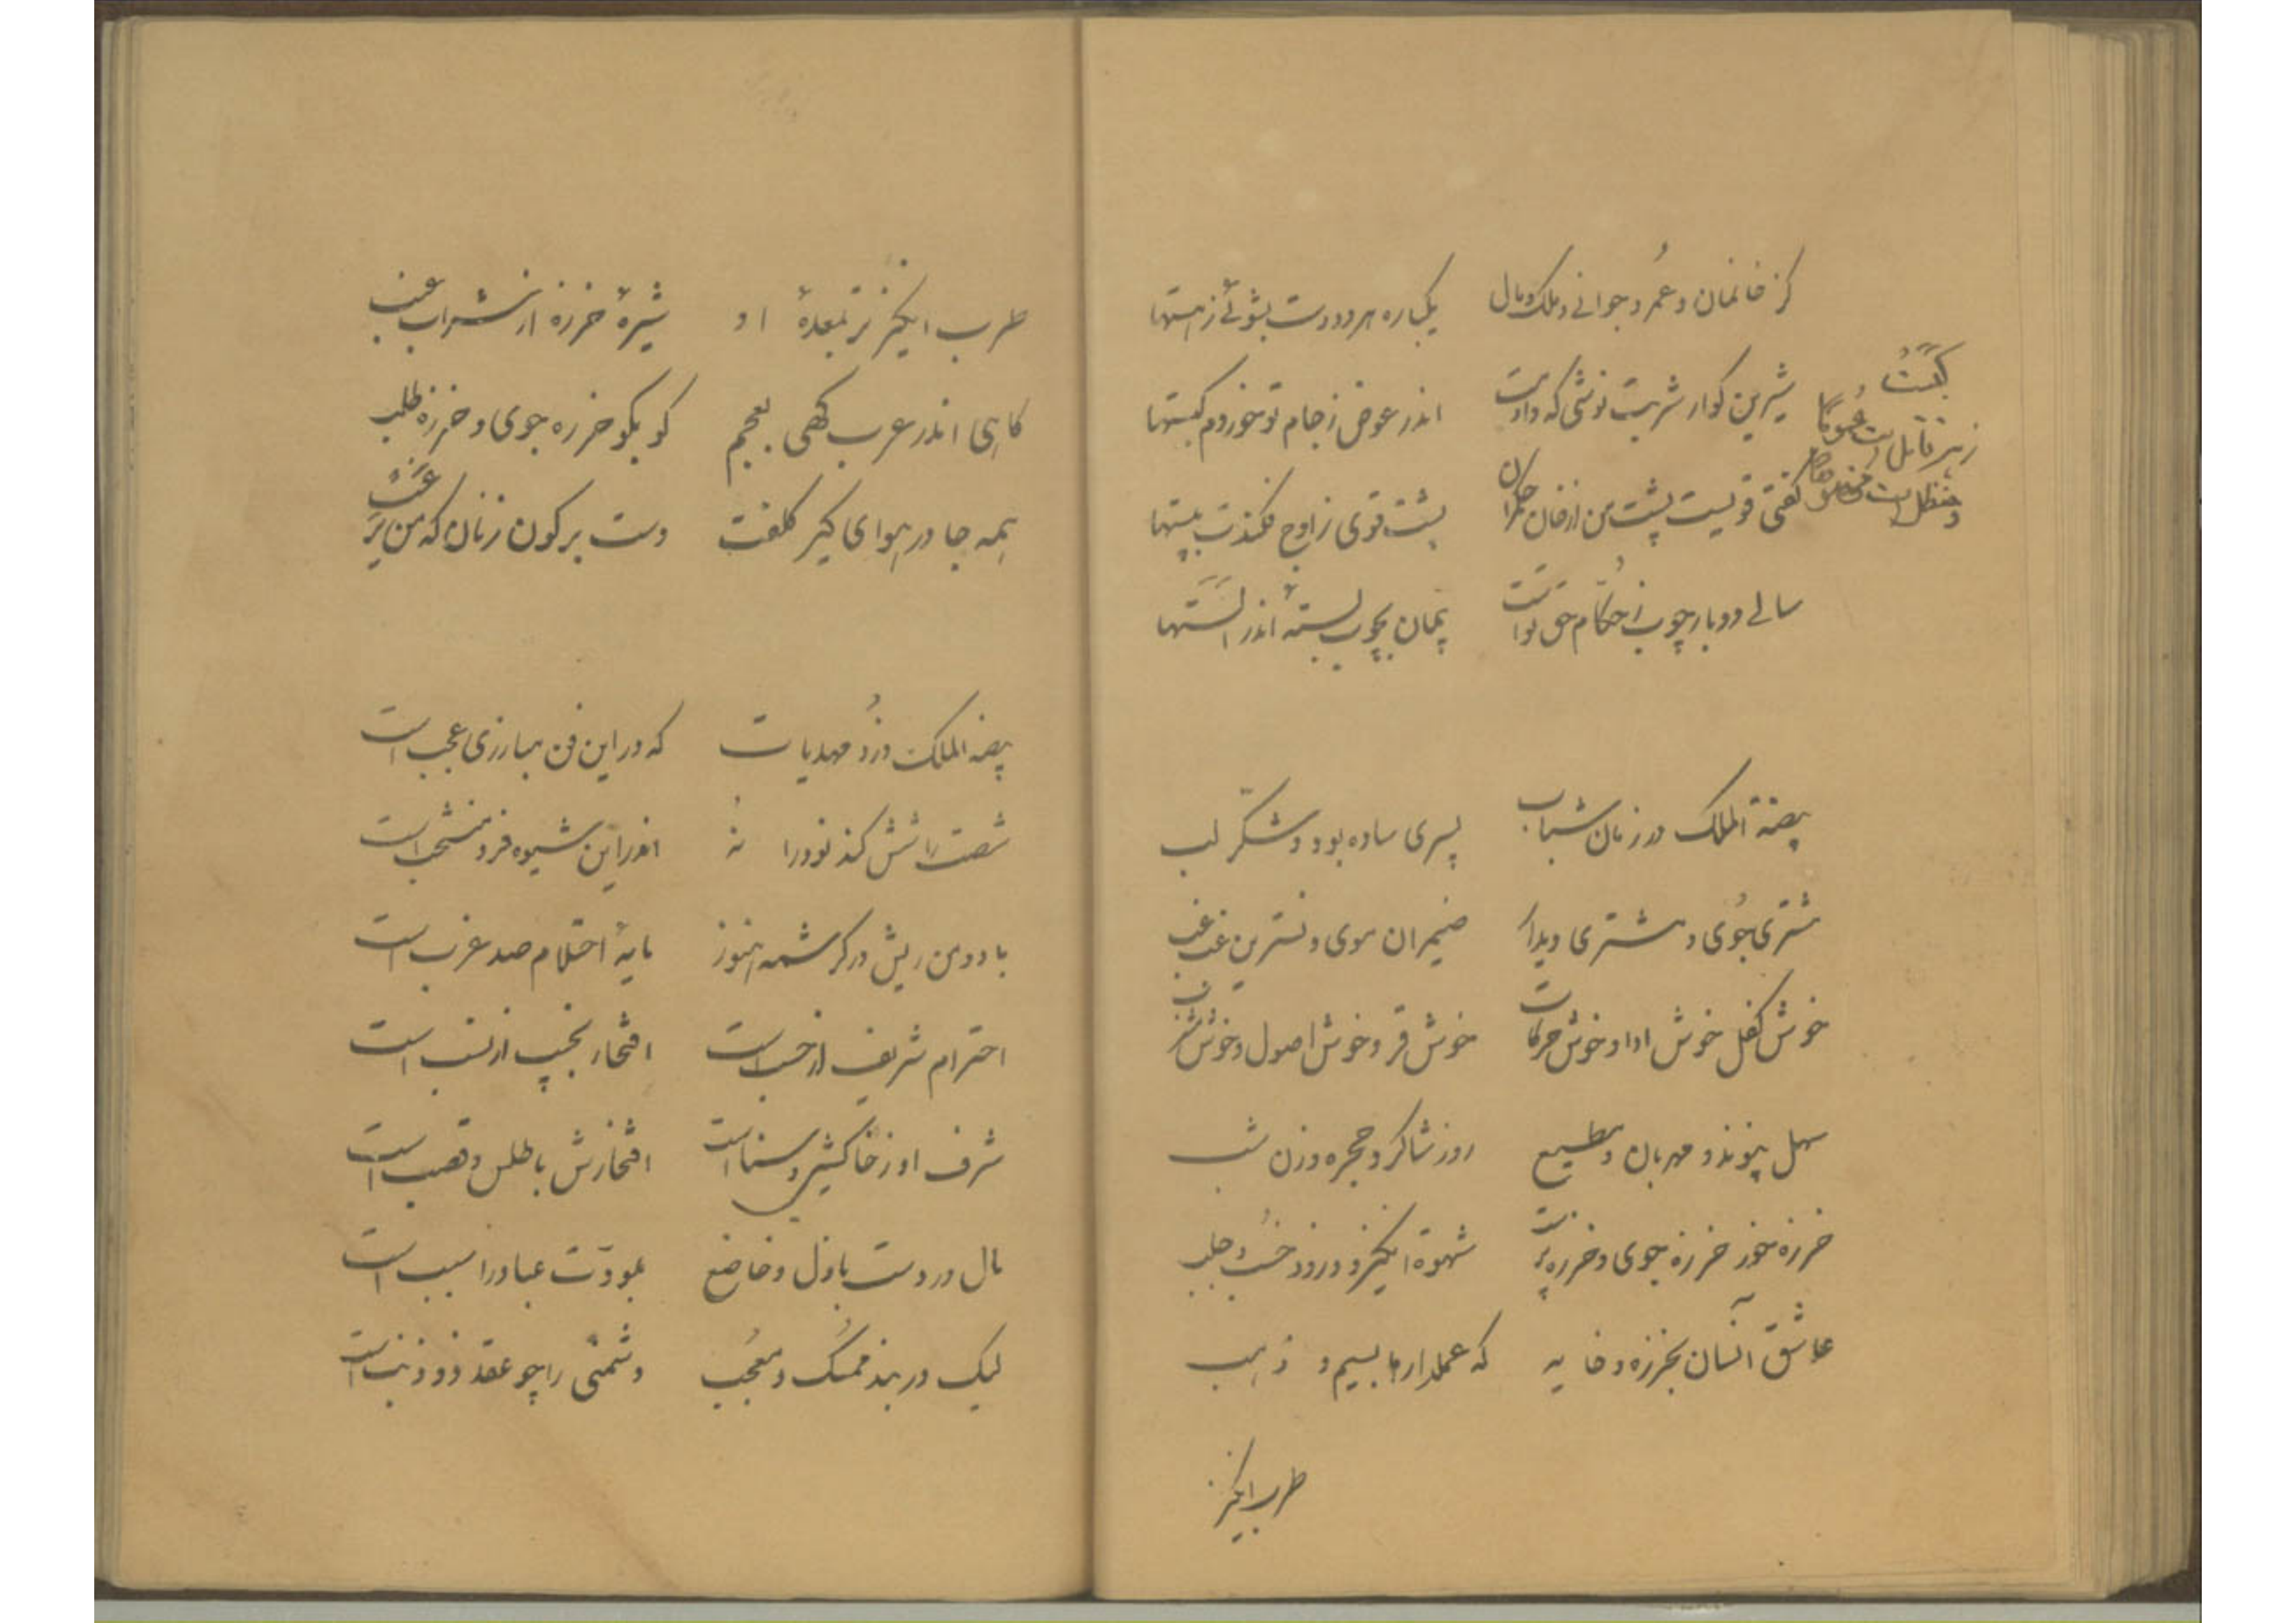 کز خانمان و عمر و جوانی و ملک و مال یکباره هر دو دست بشوئی ز هستها
شیرین گوار شربت نوشی که دادیت اندر عوض ز جام تو خوردم کبستها
کَبَست زهر قاتل است عموماً و حنظل است خصوصاً
گفتی قویست پشت من از خان حکمران پشت قوی ز اوج فکندت بپستها
سالی دو بار چوب ز حکام حق تو است پیمان بچوب بستهٔ اندر الستها
بیضةالملک در زمان شباب پسری ساده بود و شکر لب
مشتری جوی و مشتری دیدار ضیمران موی و نسترین غبغب
خوش کفل خوش ادا و خوش حرکات خوش قر و خوش اصول و خوش
سهل پیوند و مهربان و مطیع روز شاگرد حجره و زن شب
خرزه خور خرزه جوی و خرزه پرست شهوة انگیز و دزد و جلب
عاشق آنسان بخرزه و خایه که عملدارها بسیم و ذهب
طرب انگیز
طرب انگیزتر بمعدهٔ او شیرهٔ خرزه از شراب عنب
گاهی اندر عرب گهی بعجم کو بکو خرزه جوی و خرزه طلب
همه جا در هوای کیر کلفت دست بر کون زنان که من
بیضةالملک دزد مهدیات که در این فن مبارزی عجب است
شصت را شش کند نود را نُه اندر این شیوه فرد منتخب است
با دو من ریش در کرشمه هنوز مایهٔ احتلام صد عزب است
احترام شریف از حسب است افتخار نجیب از نسب است
شرف او ز خاکشیر و سنا است افتخارش باطلس و قصب است
مال در دست باذل و خاضع بمودّت عباد را سبب است
لیک در بند ممسک و معجب دشمنی را چو عقد ذو ذنب است